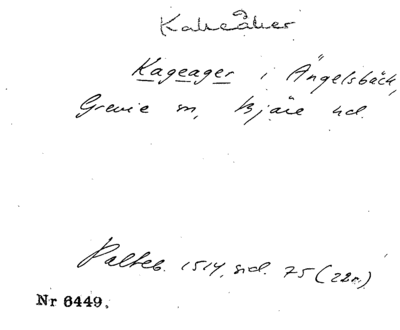 Kakeåker
Kageager i Ängelsbäck,
Grevie sn, Bjäre hd.
Palteb. 1514, sid. 75 (22r)
Nr 6449.